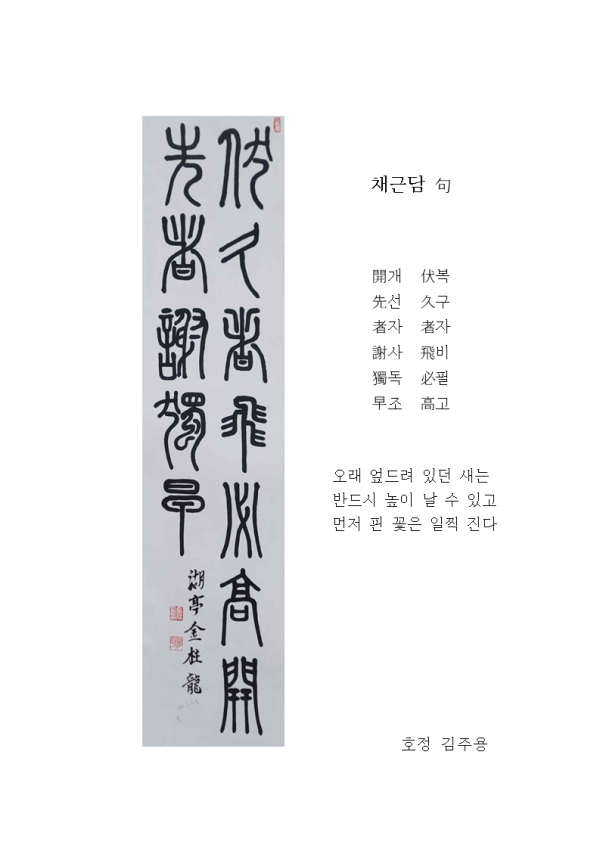 伏久者飛必高開
先者謝獨早
湖亭金柱龍
채근담 句
開개 伏복
先선 久구
者자 者자
謝사 飛비
獨독 必필
早조 高고
오래 엎드려 있던 새는
반드시 높이 날 수 있고
먼저 핀 꽃은 일찍 진다
호정 김주용